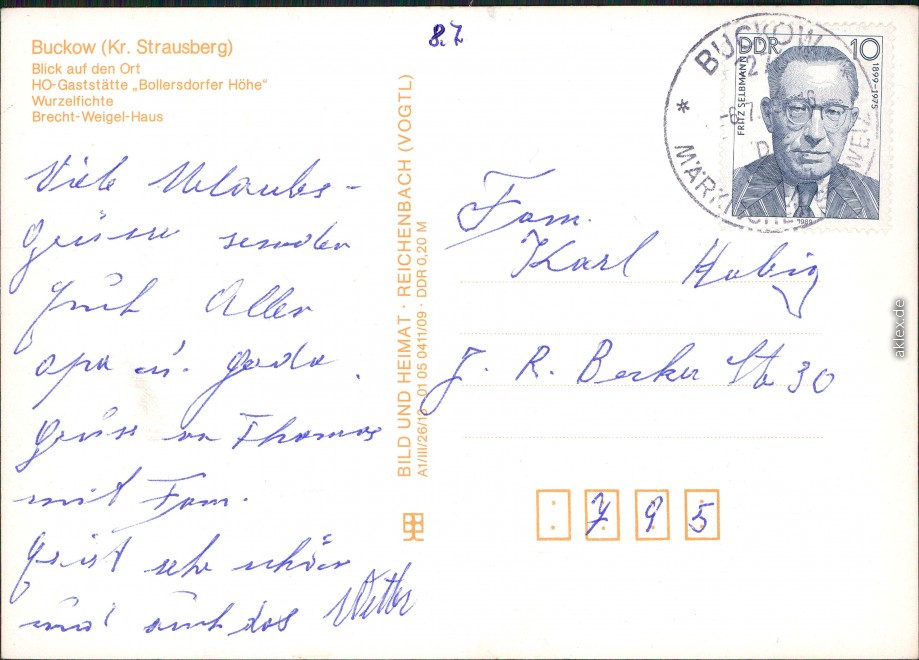 Buckow (Kr. Strausberg)
Blick auf den Ort
HO-Gaststätte „Bollersdorfer Höhe“
Wurzelfichte
Brecht-Weigel-Haus
Viele Urlaubs-
grüsse senden
Euch Allen
Opa u. Gerda.
Grüss an Thomas
mit Fam.
Es ist sehr schön
und auch das Wetter
BILD UND HEIMAT · REICHENBACH (VOGTL)
01 05 0411/09 · DDR 0,20 M
8.7
BUCKOW
MÄRKISCHE
DDR 10
FRITZ SELBMANN
1899–1975
Fam.
Karl Hubig
J. R. Becker Str 30
7 9 5
aklex.de